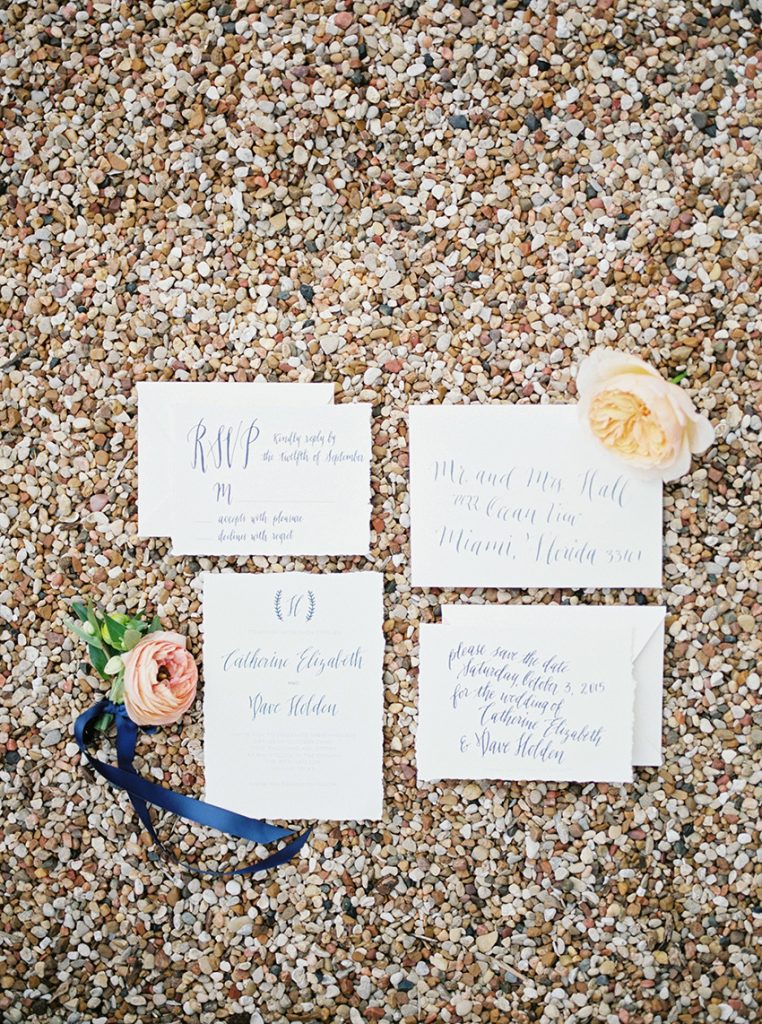 RSVP
kindly reply by
the twelfth of September
M
accepts with pleasure
declines with regret
Mr. and Mrs. Hall
Ocean View
Miami, Florida 33101
H
Catherine Elizabeth
AND
Dave Holden
please save the date
Saturday, October 3, 2015
for the wedding of
Catherine Elizabeth
& Dave Holden